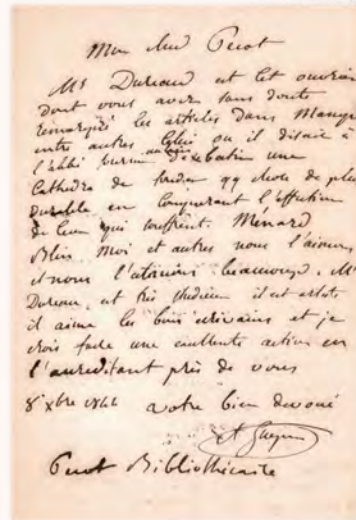 Mon cher Perot
Mr Dureau est cet ouvrier
dont vous avez sans doute
remarqué les articles dans
entre autres celui ou il disait à
l'abbé au lieu d'exbatir une
Cathedra de fonder qq chose de plus
durable en conquerant l'affection
de ceux qui souffrent. Menard
Blin, Moi et autres nous l'aimons
et nous l'estimons beaucoup. Mr
Dureau, est très studieux il est artiste
il aime les bons écrivains et je
crois faire une excellente action en
l'accréditant près de vous
8 xbre 1844 votre bien devoué
A Guepin
Perot Bibliothécaire